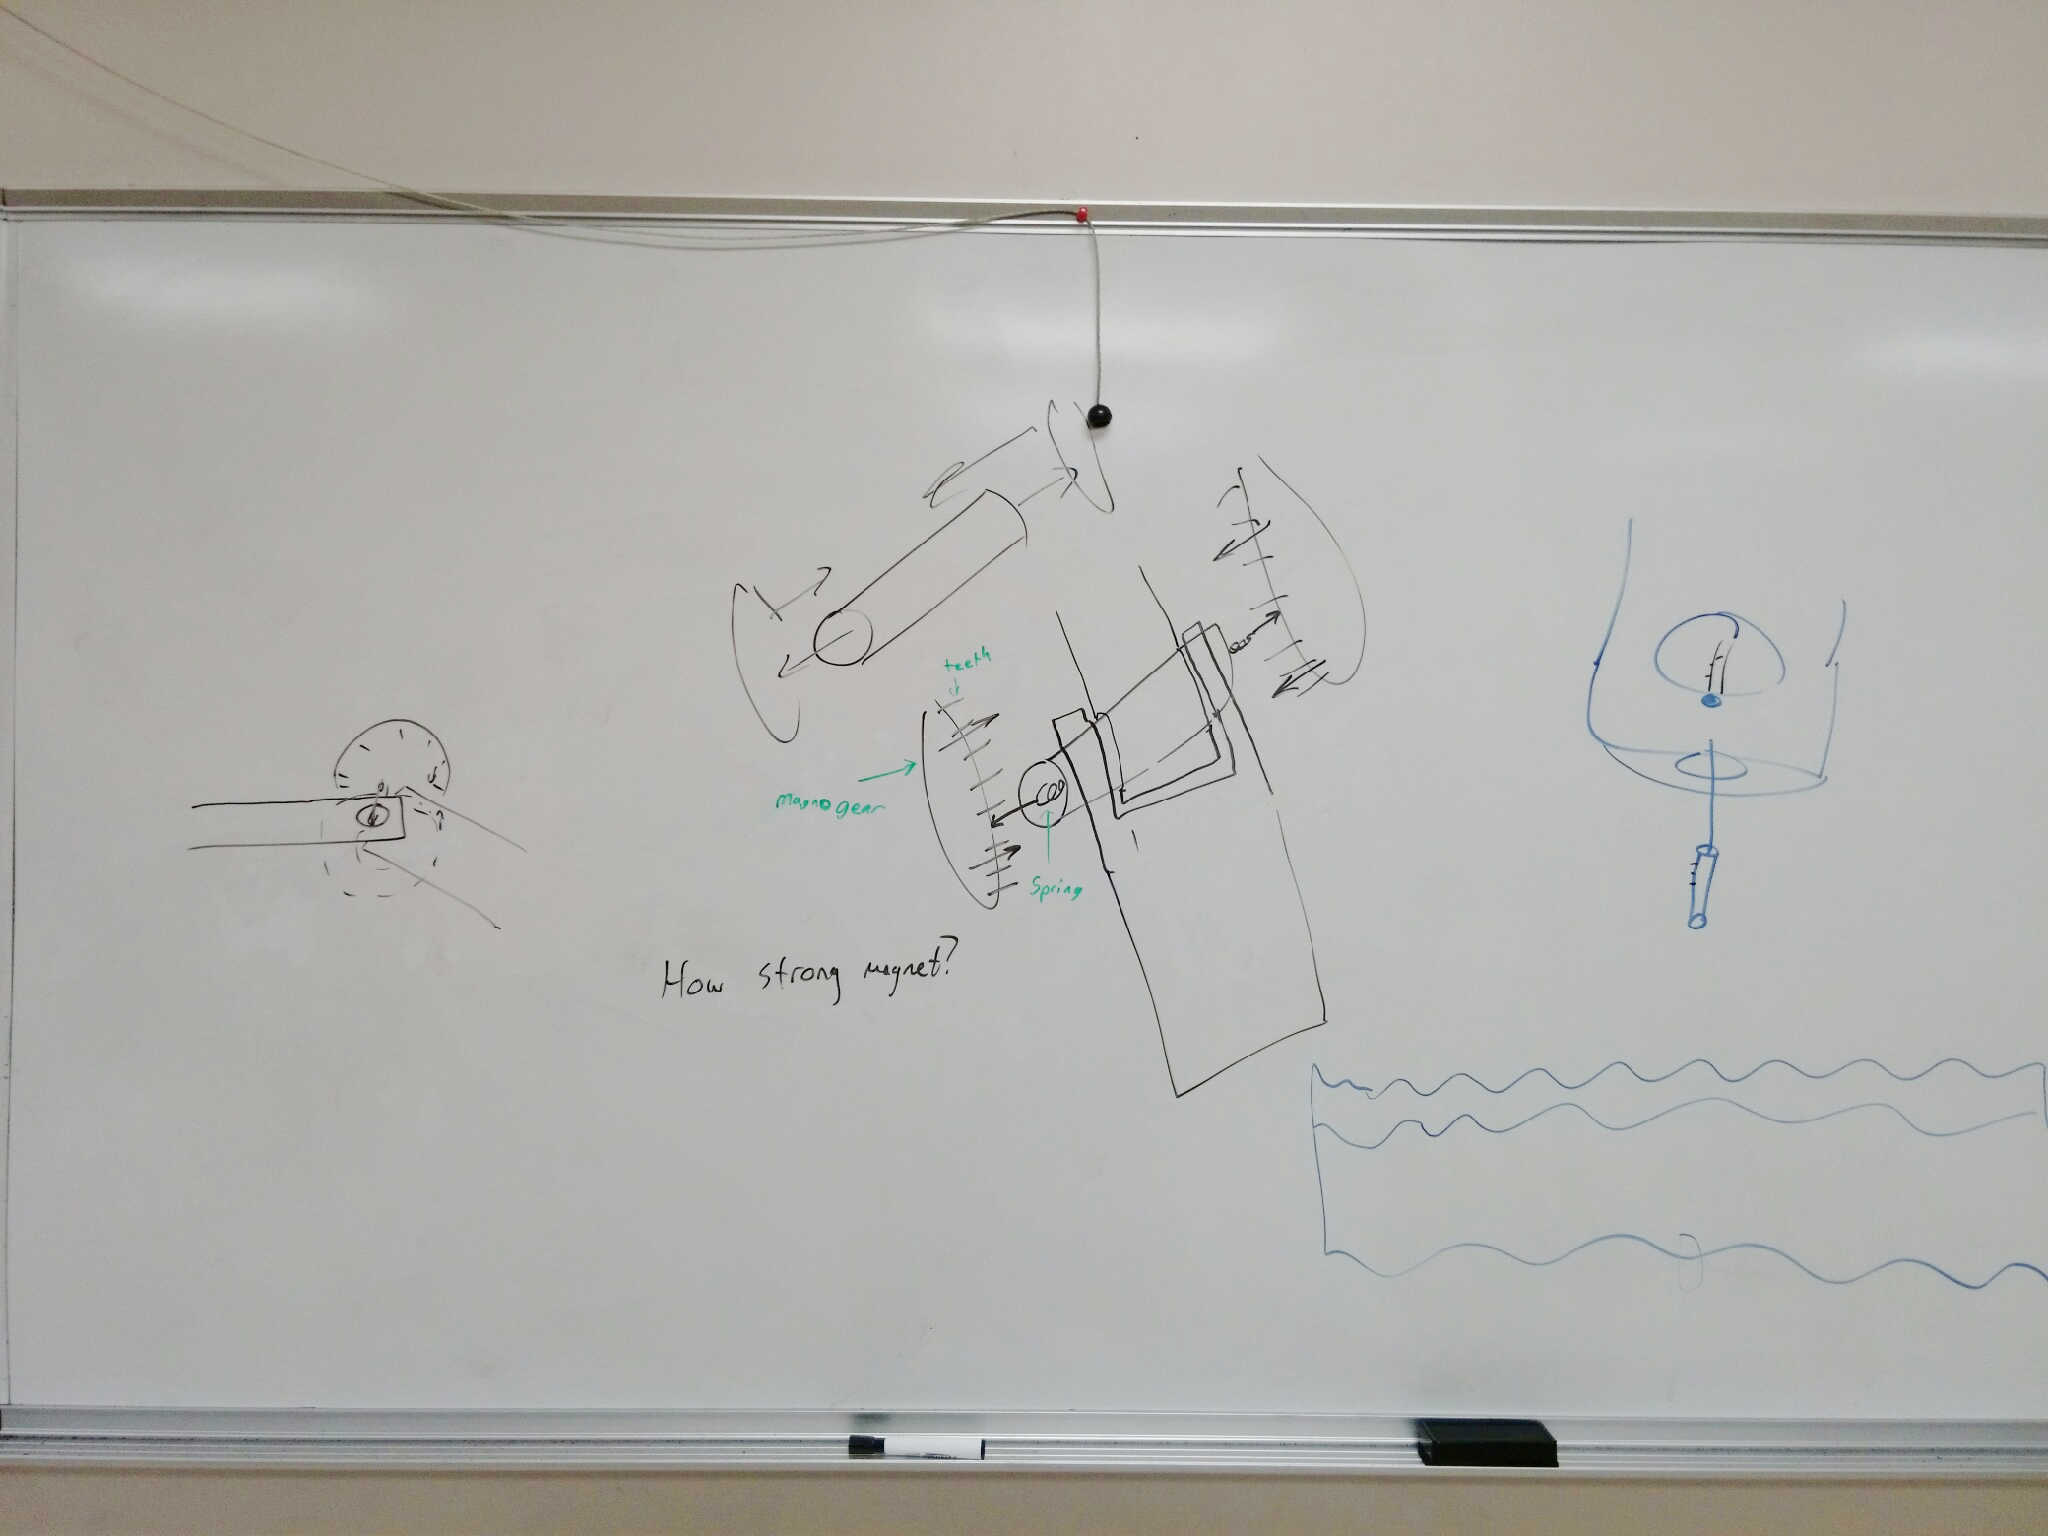 teeth
magnogear
Spring
How strong magnet?